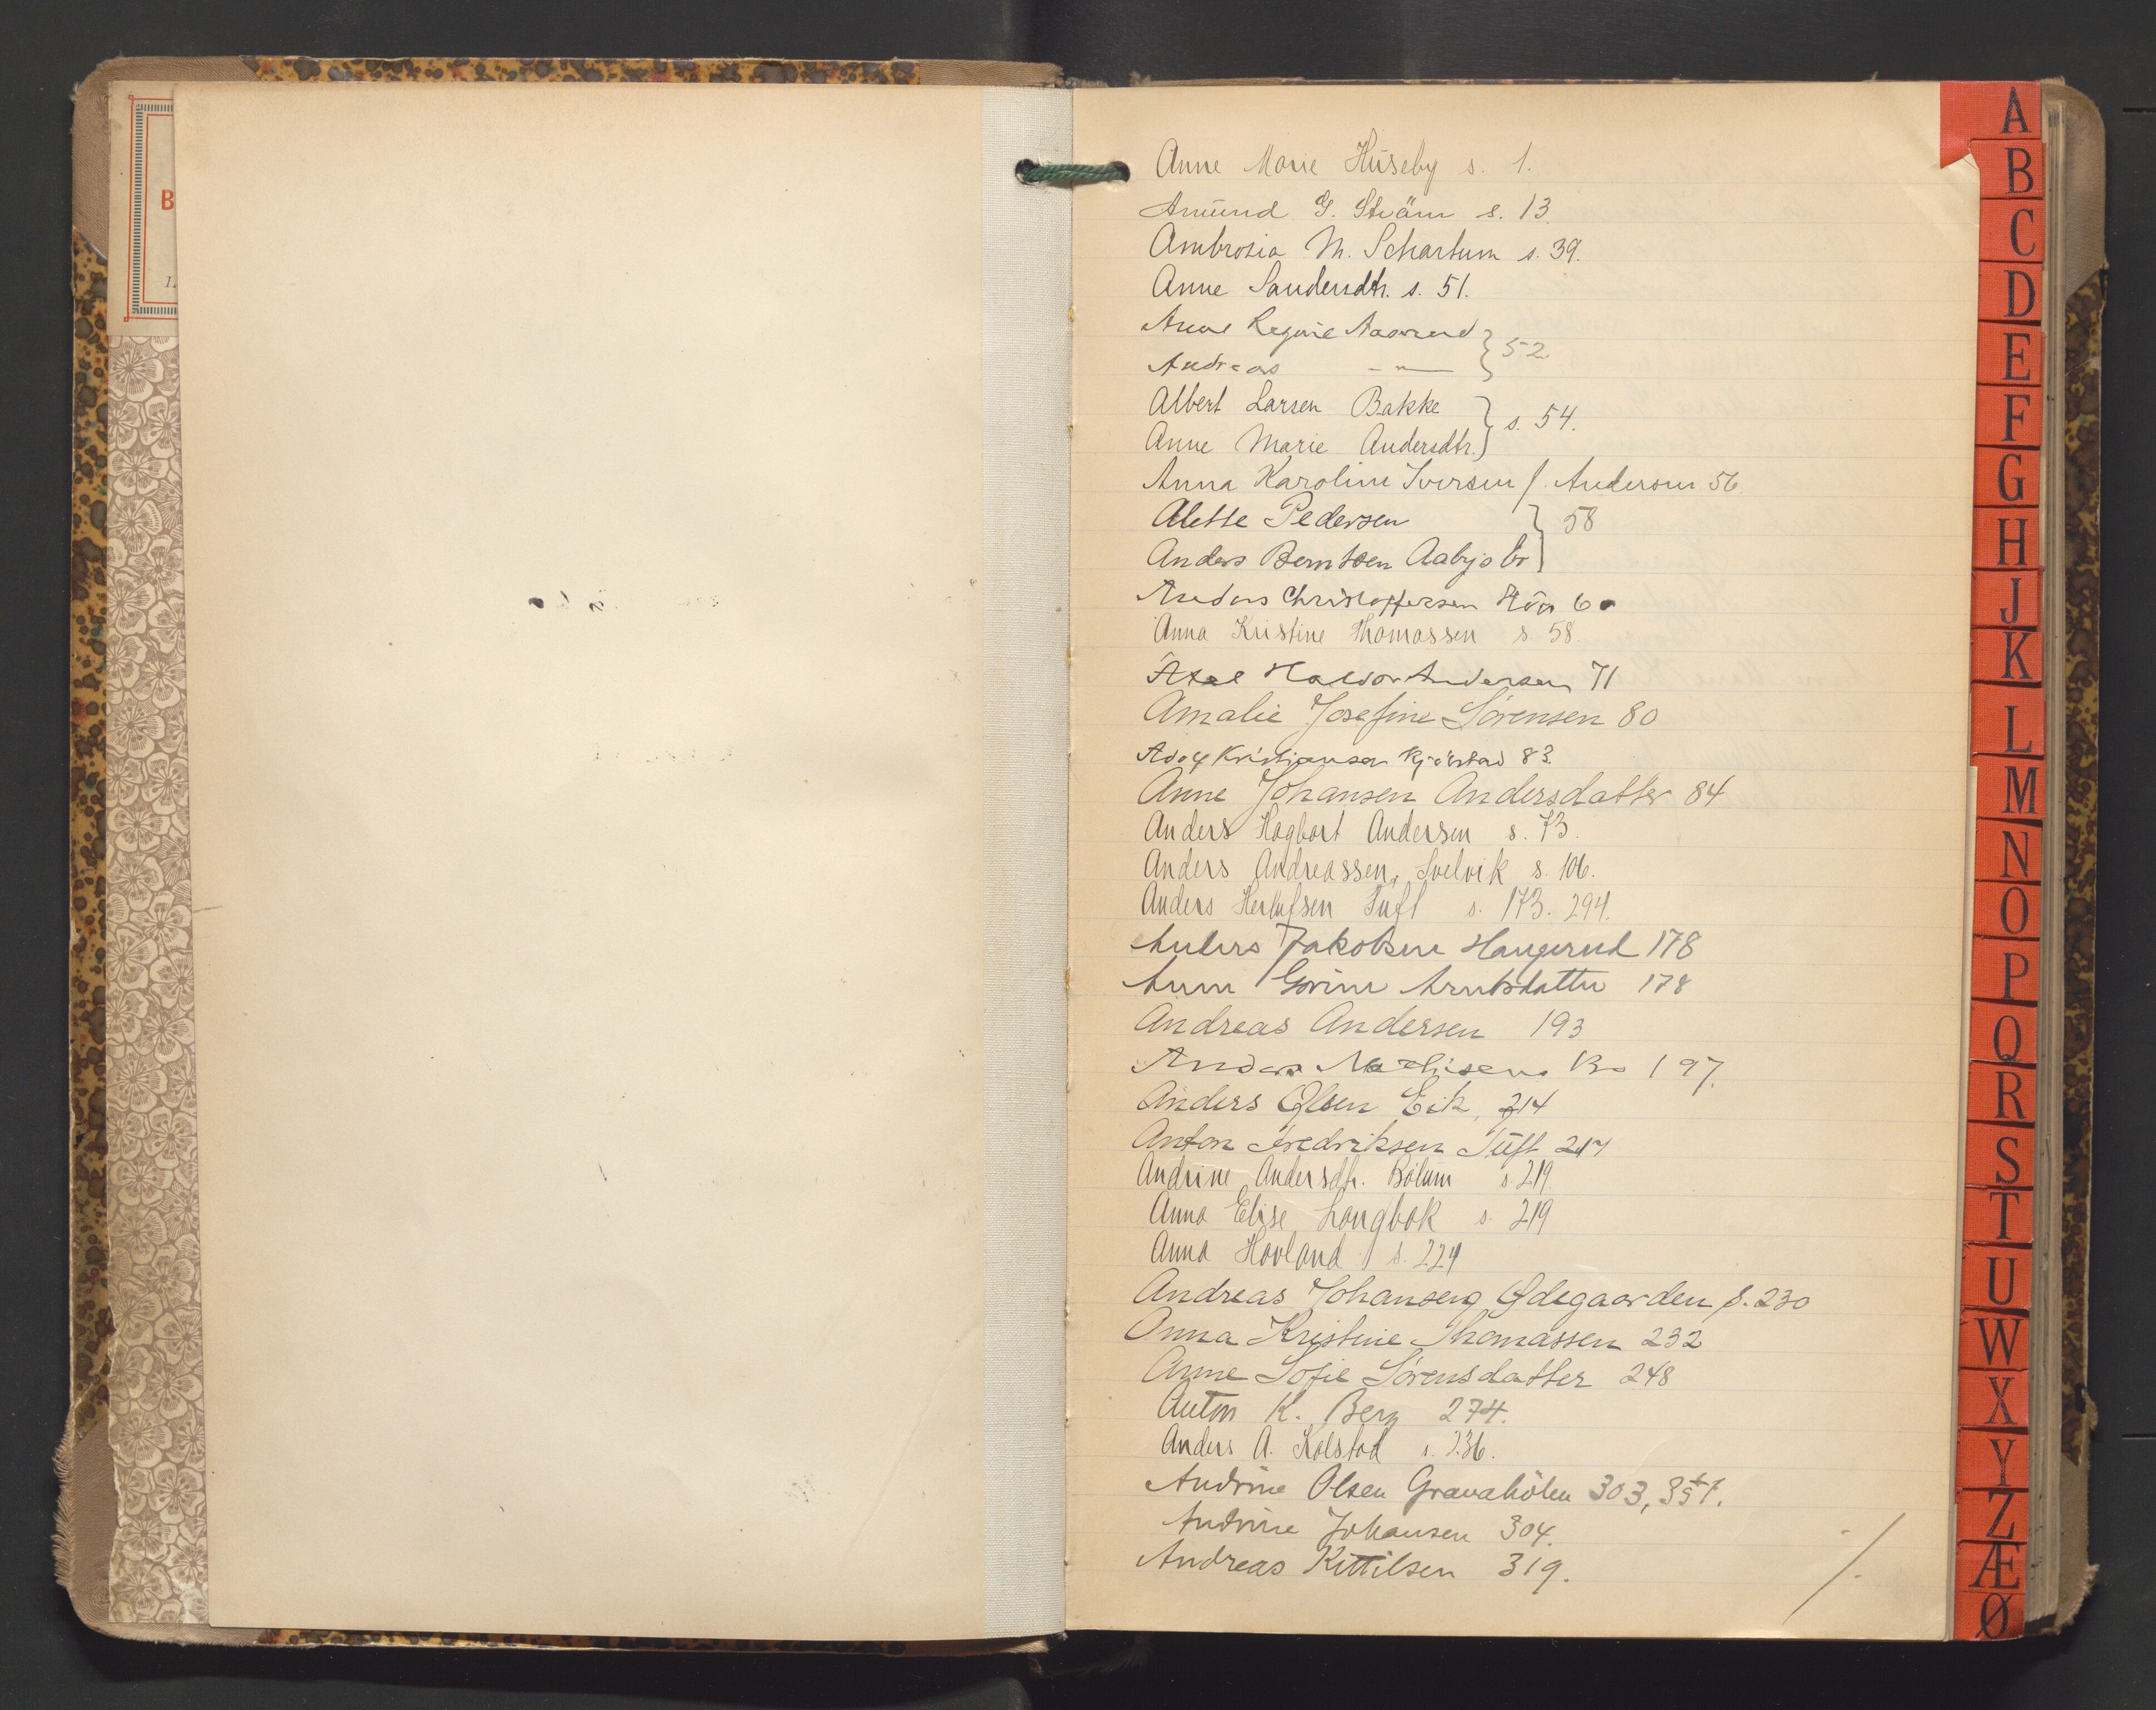 B
I.
Anne Marie Huseby s. 1.
Amund G. Strøm s. 13.
Ambrosia M. Schartum s. 39.
Anne Sandersdtr. s. 51.
Anne Regine Aaserud } 52
Andreas — " —
Albert Larsen Bakke } s. 54.
Anne Marie Andersdtr. }
Anna Karoline Iversen f. Andersen 56
Alette Pedersen } 58
Anders Berntsen Aabysbr }
Anders Christoffersen 60
Anna Kristine Thomassen s. 58.
Axel Haldor Andersen 71
Amalie Josefine Sörensen 80
Adolf Kristiansen Kjörstad 83.
Anne Johansen Andersdatter 84
Anders Hagbart Andersen s. 73.
Anders Andreassen, Svelvik s. 106.
Anders Herlufsen Tuft s. 173. 294.
Anders Jakobsen Haugerud 178
Anne Gorine Arntsdatter 178
Andreas Andersen 193
Anders Mathisen Bo 197.
Anders Olsen Eik, 214
Anton Fredriksen Tuft 217
Andrine Andersdtr. Bölum s. 219.
Anna Elise Langbak s. 219
Anna Hovland s. 224
Andreas Johansen Ødegaarden s. 230
Anna Kristine Thomassen 232
Anne Sofie Sörensdatter 248
Anton K. Berg 274.
Anders A. Kolstad s. 236.
Andrine Olsen Gravahölen 303,
Andrine Johansen 304.
Andreas Kittilsen 319.
A
B
C
D
E
F
G
H
J
K
L
M
N
O
P
Q
R
S
T
U
W
X
Y
Z
Æ
Ø